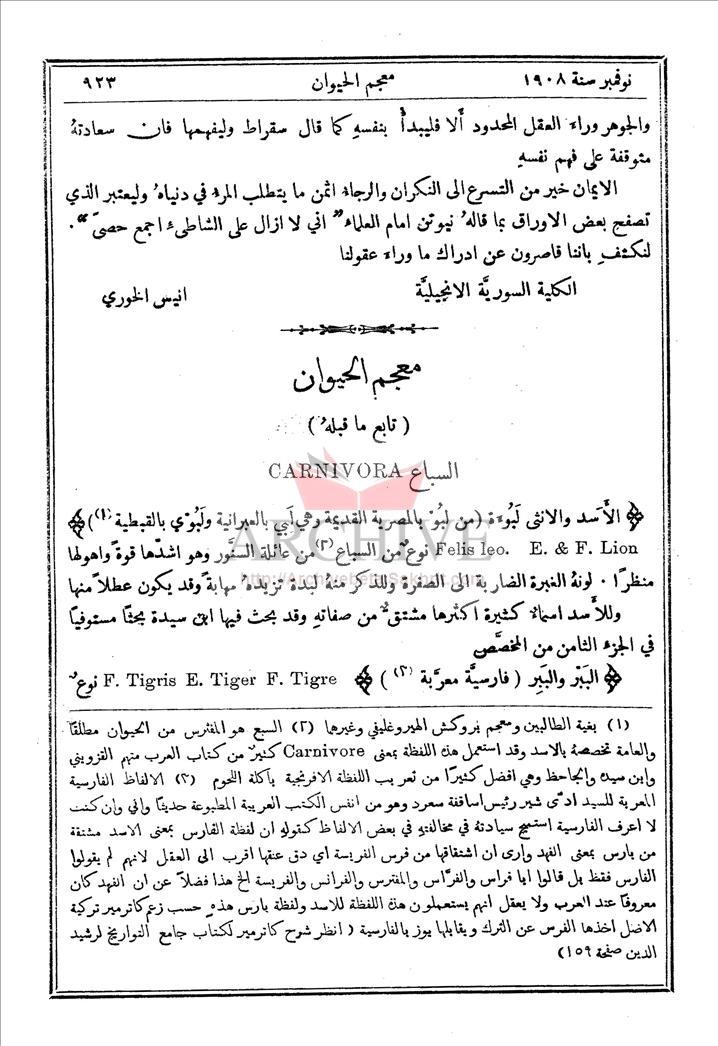 نوفمبر سنة ١٩٠٨ معجم الحيوان ٩٢٣
والجوهر وراء العقل المحدود ألا فليبدأ بنفسهِ كما قال سقراط وليفهمها فان سعادتهُ
متوقفة على فهم نفسهِ
الايمان خير من التسرع الى النكران والرجاء اثمن ما يتطلب المرء في دنياهُ وليعتبر الذي
تصفح بعض الاوراق بما قالهُ نيوتن امام العلماء "اني لا ازال على الشاطىء اجمع حصىً".
لنكتفِ باننا قاصرون عن ادراك ما وراء عقولنا
الكلية السوريَّة الانجيليَّة انيس الخوري
معجم الحيوان
( تابع ما قبلهُ )
السباع CARNIVORA
﴿ الأَسد والانثى لَبُوءة (من لبُوْ بالمصرية القديمة وهي لَبي بالعبرانية ولَبُوْي بالقبطية (١)) ﴾
Felis leo. E. & F. Lion نوعٌ من السباع (٢) من عائلة السنَّور وهو اشدّها قوةً واهولها
منظرًا. لونهُ الغبرة الضاربة الى الصفرة وللذكر منهُ لبدة تزيدهُ مهابةً وقد يكون عطلاً منها
وللأَسد اسماءٌ كثيرة اكثرها مشتقٌّ من صفاتهِ وقد بحث فيها ابن سيدة بحثًا مستوفيًا
في الجزء الثامن من المخصَّص
﴿ البَبْر والبَبِر ( فارسيَّة معرَّبة (٣) ) ﴾ F. Tigris E. Tiger F. Tigre نوعٌ
(١) بغية الطالبين ومعجم بروكش الهيروغليفي وغيرها (٢) السبع هو المفترس من الحيوان مطلقًا
والعامة تخصصهُ بالاسد وقد استعمل هذه اللفظة بمعنى Carnivore كثيرٌ من كتاب العرب منهم القزويني
وابن سيده والجاحظ وهي افضل كثيرًا من تعريب اللفظة الافرنجية بآكلة اللحوم (٣) الالفاظ الفارسية
المعربة للسيد ادى شير رئيس اساقفة سعرد وهو من انفس الكتب العربية المطبوعة حديثًا واني وان كنت
لا اعرف الفارسية استميح سيادتهُ في مخالفتهِ في بعض الالفاظ كقولهِ ان لفظة الفارس بمعنى الاسد مشتقة
من بارس بمعنى الفهد وارى ان اشتقاقها من فرس الفريسة اي دق عنقها اقرب الى العقل لانهم لم يقولوا
الفارس فقط بل قالوا ابا فراس والفرَّاس والمفترس والفرانس والفريسة الخ هذا فضلاً عن ان الفهد كان
معروفًا عند العرب ولا يعقل انهم يستعملون هذه اللفظة للاسد ولفظة بارس هذهِ حسب زعم كاترمير تركية
الاصل اخذها الفرس عن الترك ويقابلها يوز بالفارسية ( انظر شروح كاترمير لكتاب جامع التواريخ لرشيد
الدين صفحة ١٥٩)
ARCHIVE